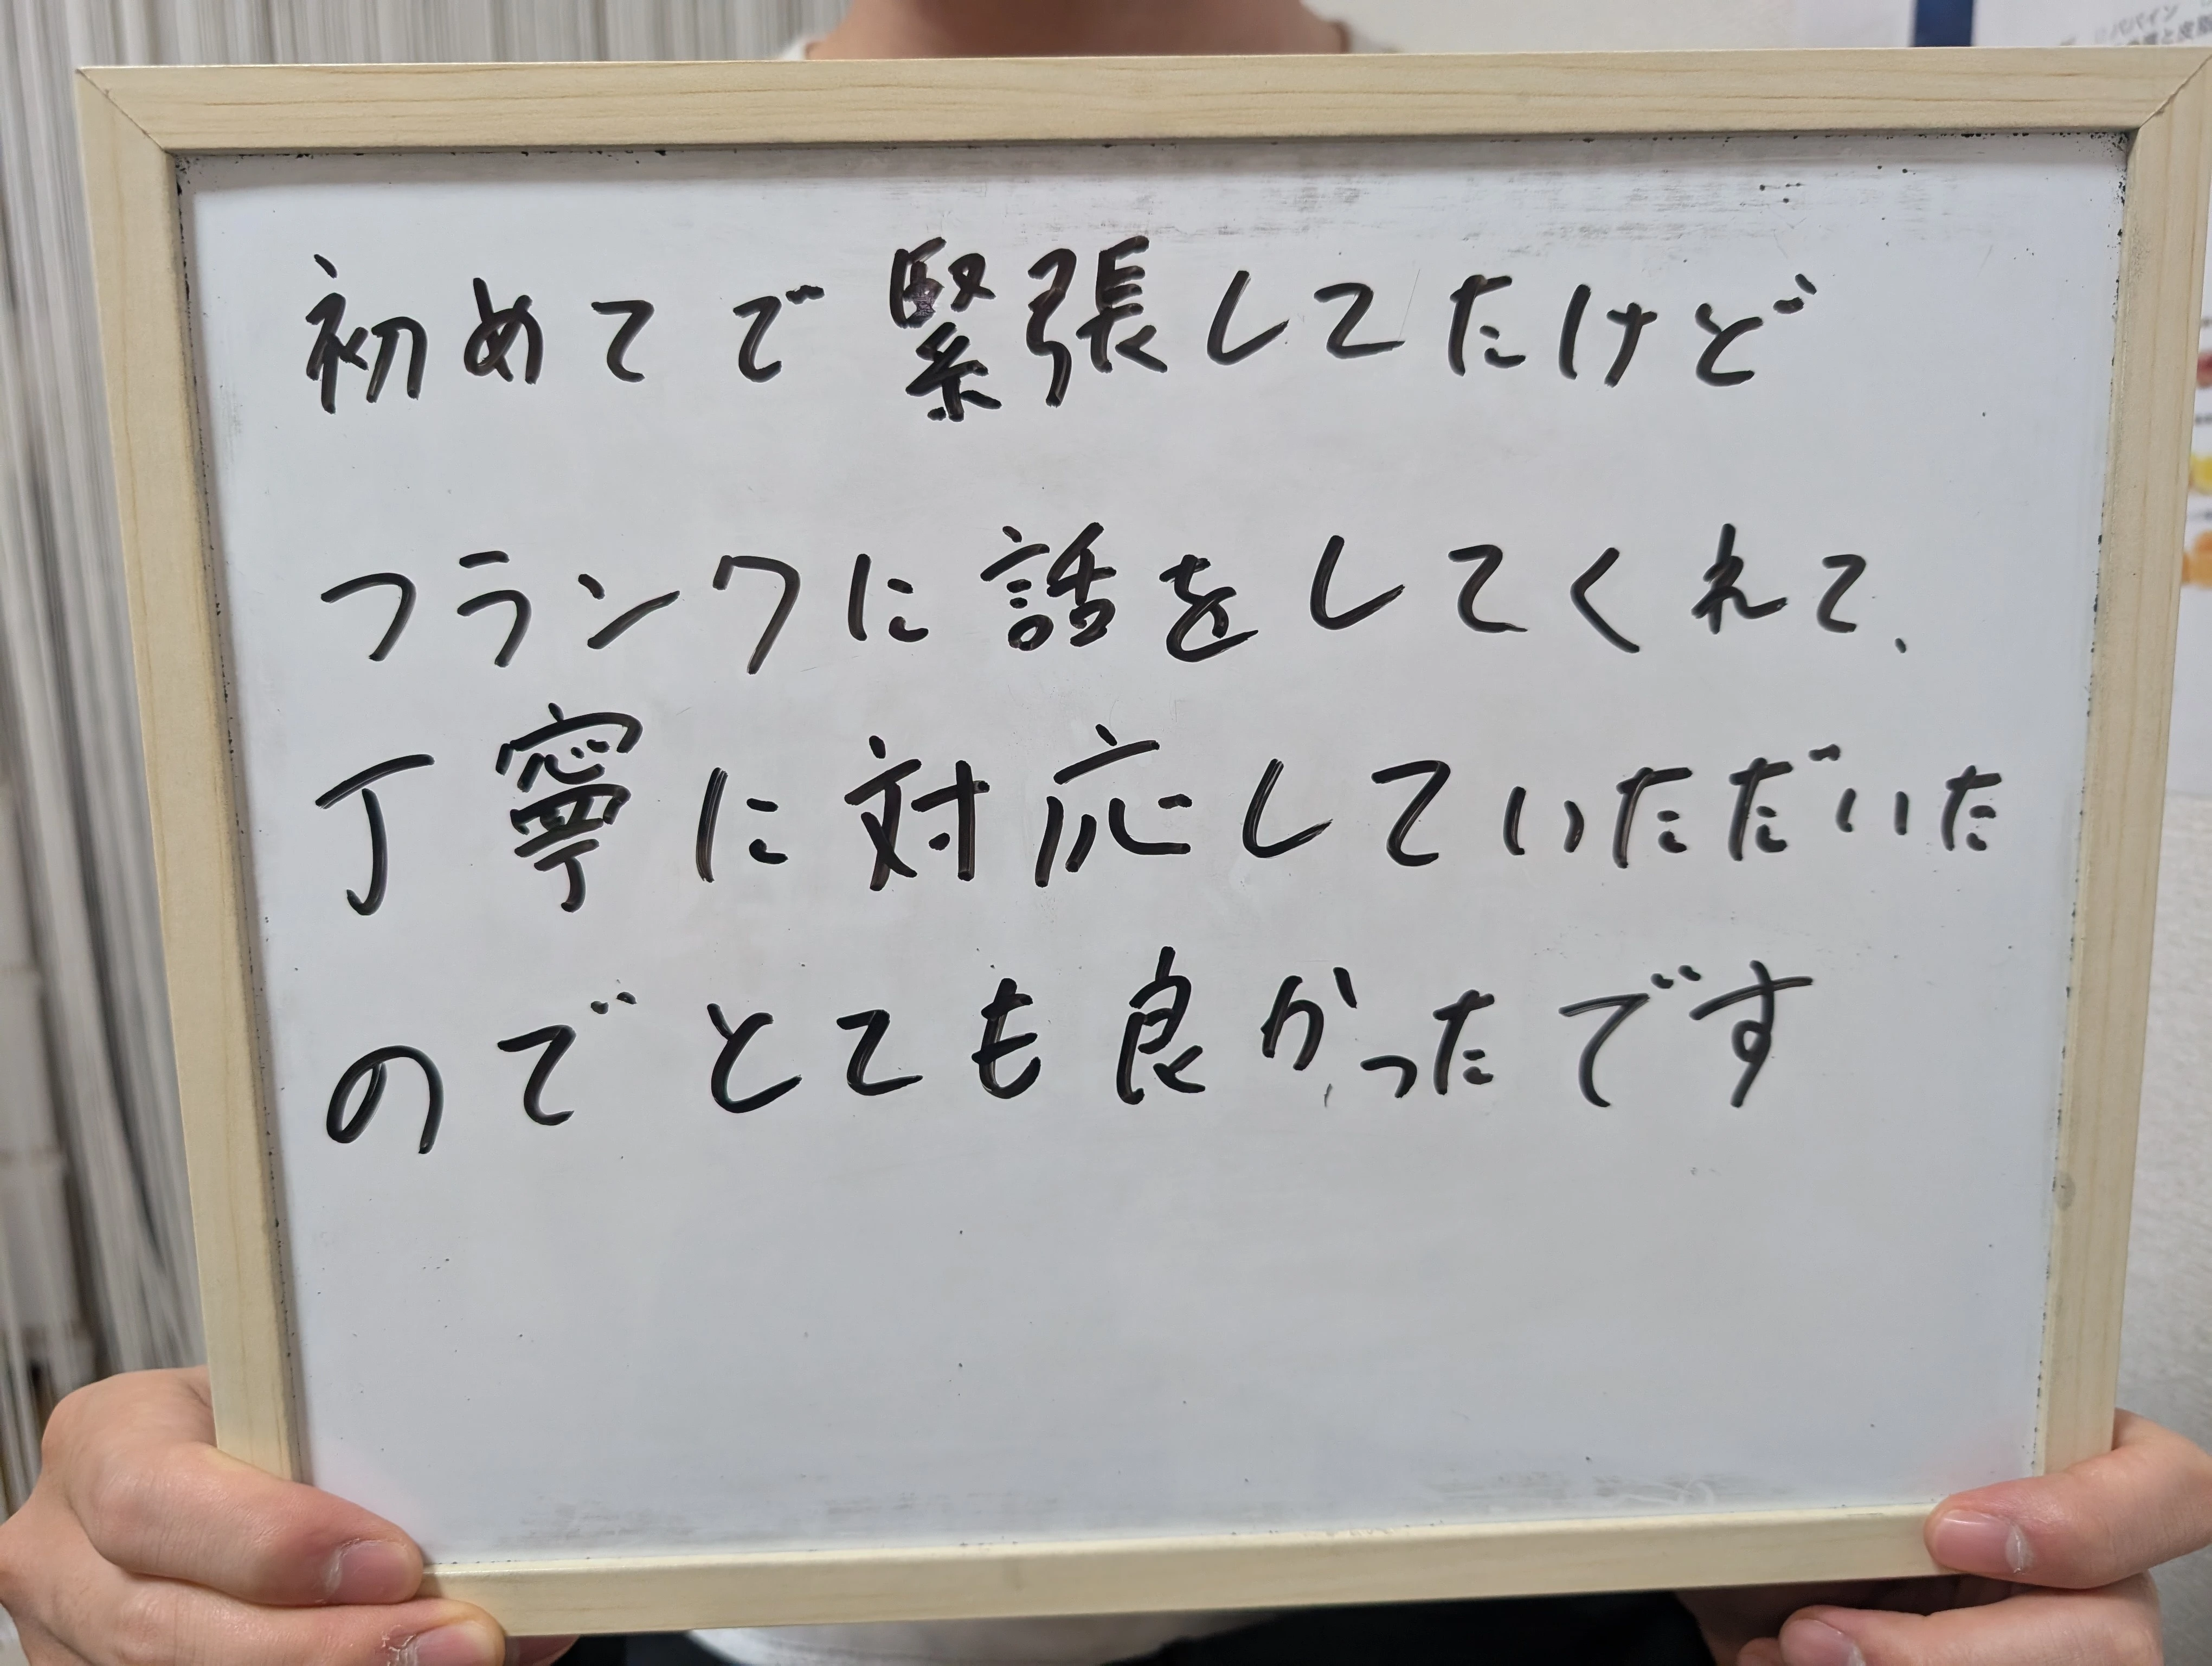 初めてで緊張してたけど
フランクに話をしてくれて、
丁寧に対応していただいた
のでとても良かったです
パパイン